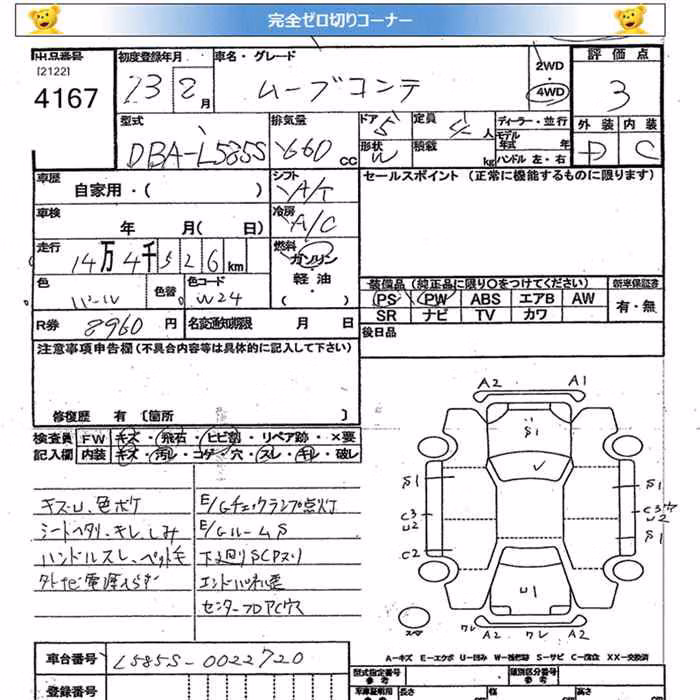 完全ゼロ切りコーナー
出品番号 初度登録年月 車名・グレード 2WD 評価点
[2122]
4167 23 2月 ムーブコンテ 4WD 3
型式 排気量 ドア 5 定員 4人 ディーラー・並行 外装 内装
DBA-L585S 660cc 形状 W 積載 kg モデル年式 年 D C
ハンドル 左・右
車歴 自家用・( ) シフト A/T セールスポイント (正常に機能するものに限ります)
車検 年 月( 日) 冷房 A/C
走行 14万4千526km 燃料 ガソリン
軽油
( )
色 パール 色替 色コード W24 装備品 (純正品に限り○をつけてください) 新車保証書
PS PW ABS エアB AW 有・無
SR ナビ TV カワ
R券 8960円 名変通知期限 月 日 後日品
注意事項申告欄(不具合内容等は具体的に記入して下さい)
修復歴 有 [箇所 ]
検査員 FW キズ・飛石・ヒビ割・リペア跡・×要
記入欄 内装 キズ・汚レ・コゲ・穴・スレ・キレ・破レ
キズU、色ボケ E/Gチェックランプ点灯
シートヘタリ、キレ、しみ E/GルームS
ハンドルスレ、ペット毛 下廻りSCPスリ
外ナビ電源入らず
A2 A1
S1
S1 S1
C3 U2
C2 S1
U1
スペア ワレ A2 ワレ A2
A-キズ E-エクボ U-凹み S-サビ C-腐食 XX-交換済
車台番号 L585S-0022720
登録番号
型式指定番号 参考 類別区分番号 参考
長さ 幅 高さ